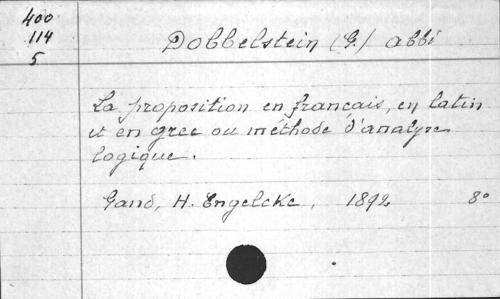 400
114
5
Dobbelstein (G.) abbé
La proposition en français, en latin
et en grec ou méthode d'analyse
logique.
Gand, H. Engelcke, 1892 8°